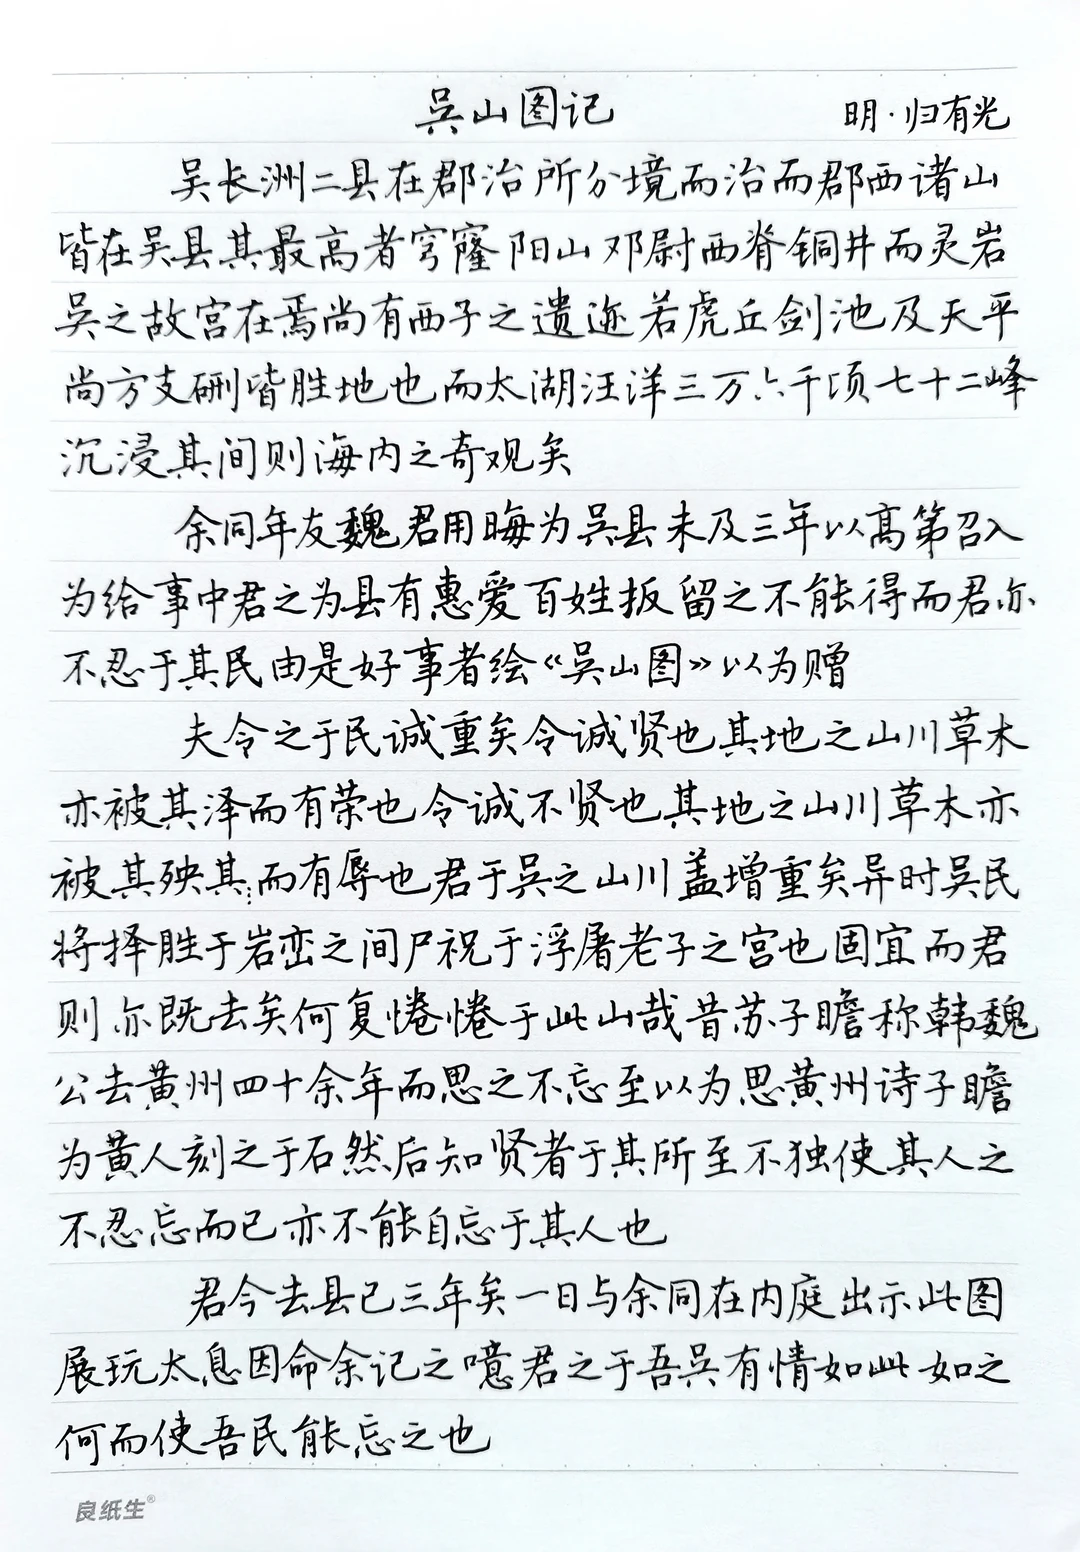 吴山图记
明·归有光
吴长洲二县在郡治所分境而治而郡西诸山
皆在吴县其最高者穹窿阳山邓尉西脊铜井而灵岩
吴之故宫在焉尚有西子之遗迹若虎丘剑池及天平
尚方支硎皆胜地也而太湖汪洋三万六千顷七十二峰
沉浸其间则海内之奇观矣
余同年友魏君用晦为吴县未及三年以高第召入
为给事中君之为县有惠爱百姓扳留之不能得而君亦
不忍于其民由是好事者绘《吴山图》以为赠
夫令之于民诚重矣令诚贤也其地之山川草木
亦被其泽而有荣也令诚不贤也其地之山川草木亦
被其殃其而有辱也君于吴之山川盖增重矣异时吴民
将择胜于岩峦之间尸祝于浮屠老子之宫也固宜而君
则亦既去矣何复惓惓于此山哉昔苏子瞻称韩魏
公去黄州四十余年而思之不忘至以为思黄州诗子瞻
为黄人刻之于石然后知贤者于其所至不独使其人之
不忍忘而已亦不能自忘于其人也
君今去县已三年矣一日与余同在内庭出示此图
展玩太息因命余记之噫君之于吾吴有情如此如之
何而使吾民能忘之也
良纸生®